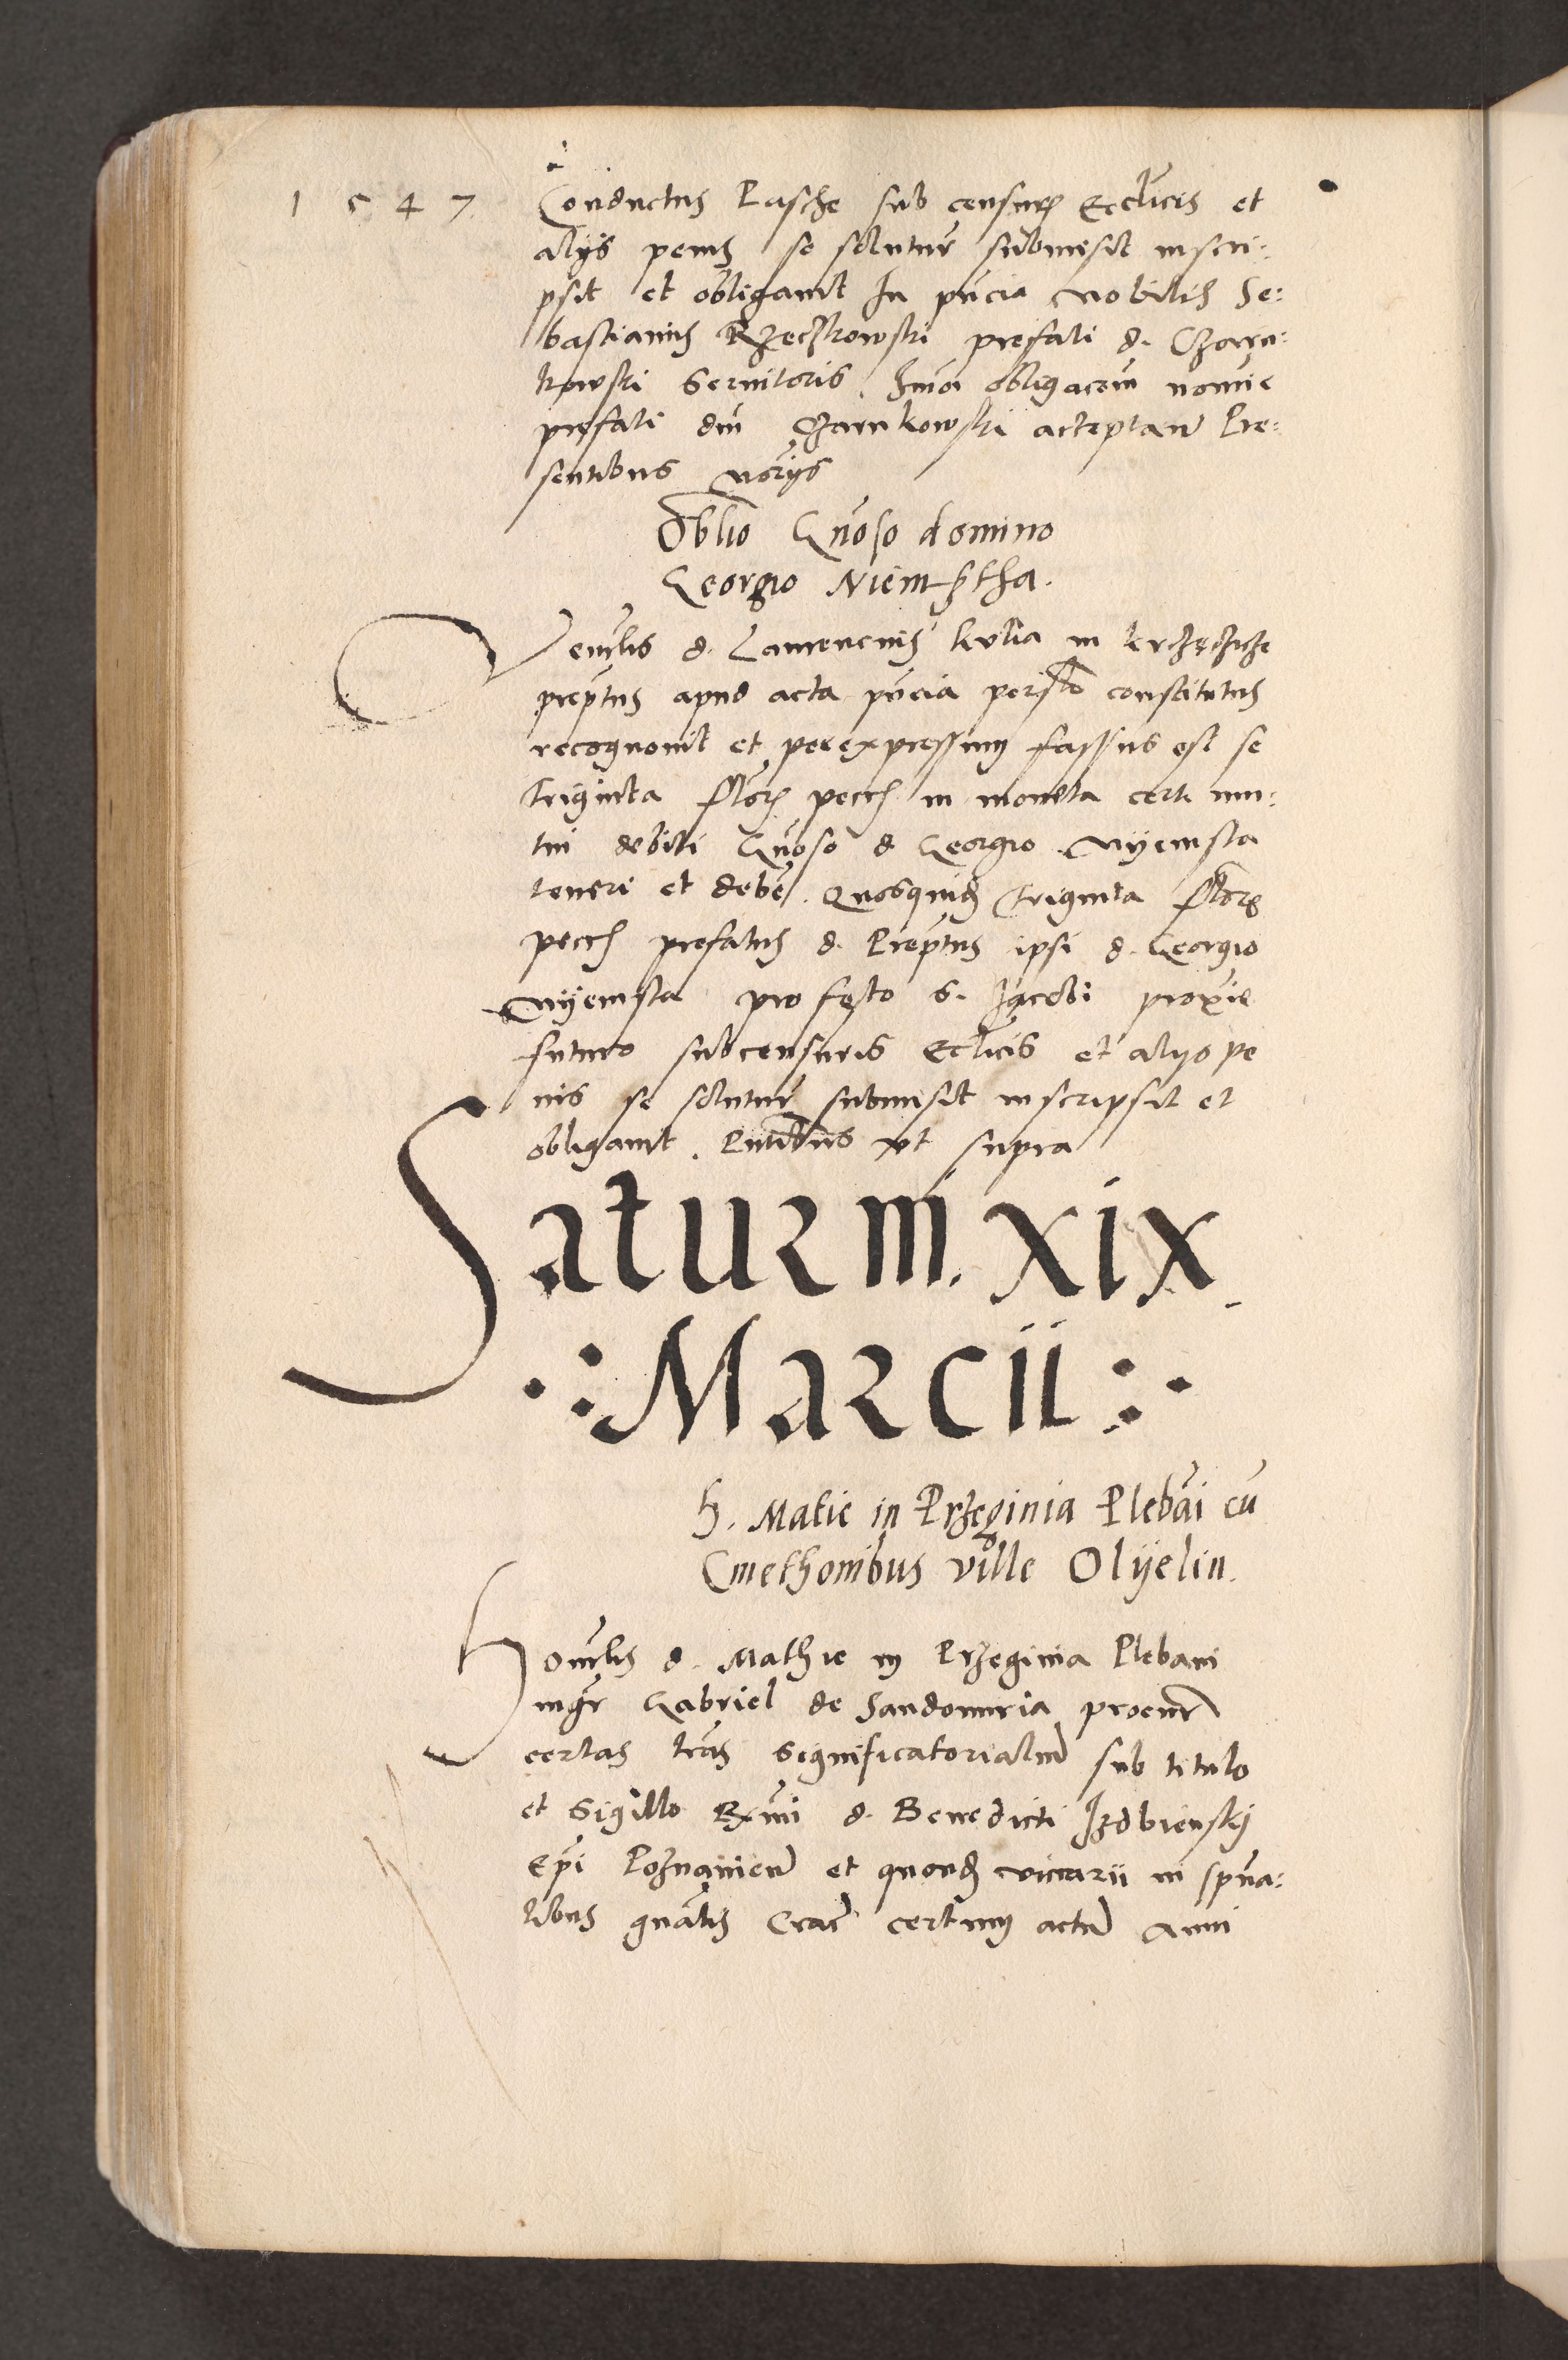 1547
Conductus Pasche sub censuris Ecclicis et
alijs penis se soluturum submisit inscri:
psit et obligauit In pñcia nobilis Se:
bastianus Rzeczkowski prefati d. Czarn:
kowski Seruitoris. Hmõi obligacoem nomie
prefati dni Czarnkowski acceptan Pre:
sentibus norijs
Oblio Gñoso domino
Georgio Niemstha.
Venerlis d. Laurencius kulia in
preptus apud acta pñcia personlr constitutus
recognouit et per expressum fassus est se
triginta flor pecc in moneta certi mu:
tui debiti Gñoso d Georgio Nyemsta
teneri et debere. Quosquid triginta flor
pecc prefatus d. Preptus ipsi d. Georgio
Nyemsta pro festo S. Jacobi proxie
futuro sub censuris Eccłicis et alijs pe
nis se soluturum submisit inscripsit et
obligauit. Pñtibus ut supra
Saturni. xix
Marcii
H. Matie in Przeginia Plebãi cũ
Cmethonibus ville Olyelin.
Honorlis d. Mathie in Przeginia Plebani
mgr Gabriel de Sandomiria procur
certas lrãs significatorialium sub titulo
et Sigillo Rmi d. Benedicti Izdbienski
Epi Poznanien et quond vicarii in spua:
libus gnãlis Crac certum actum Anni